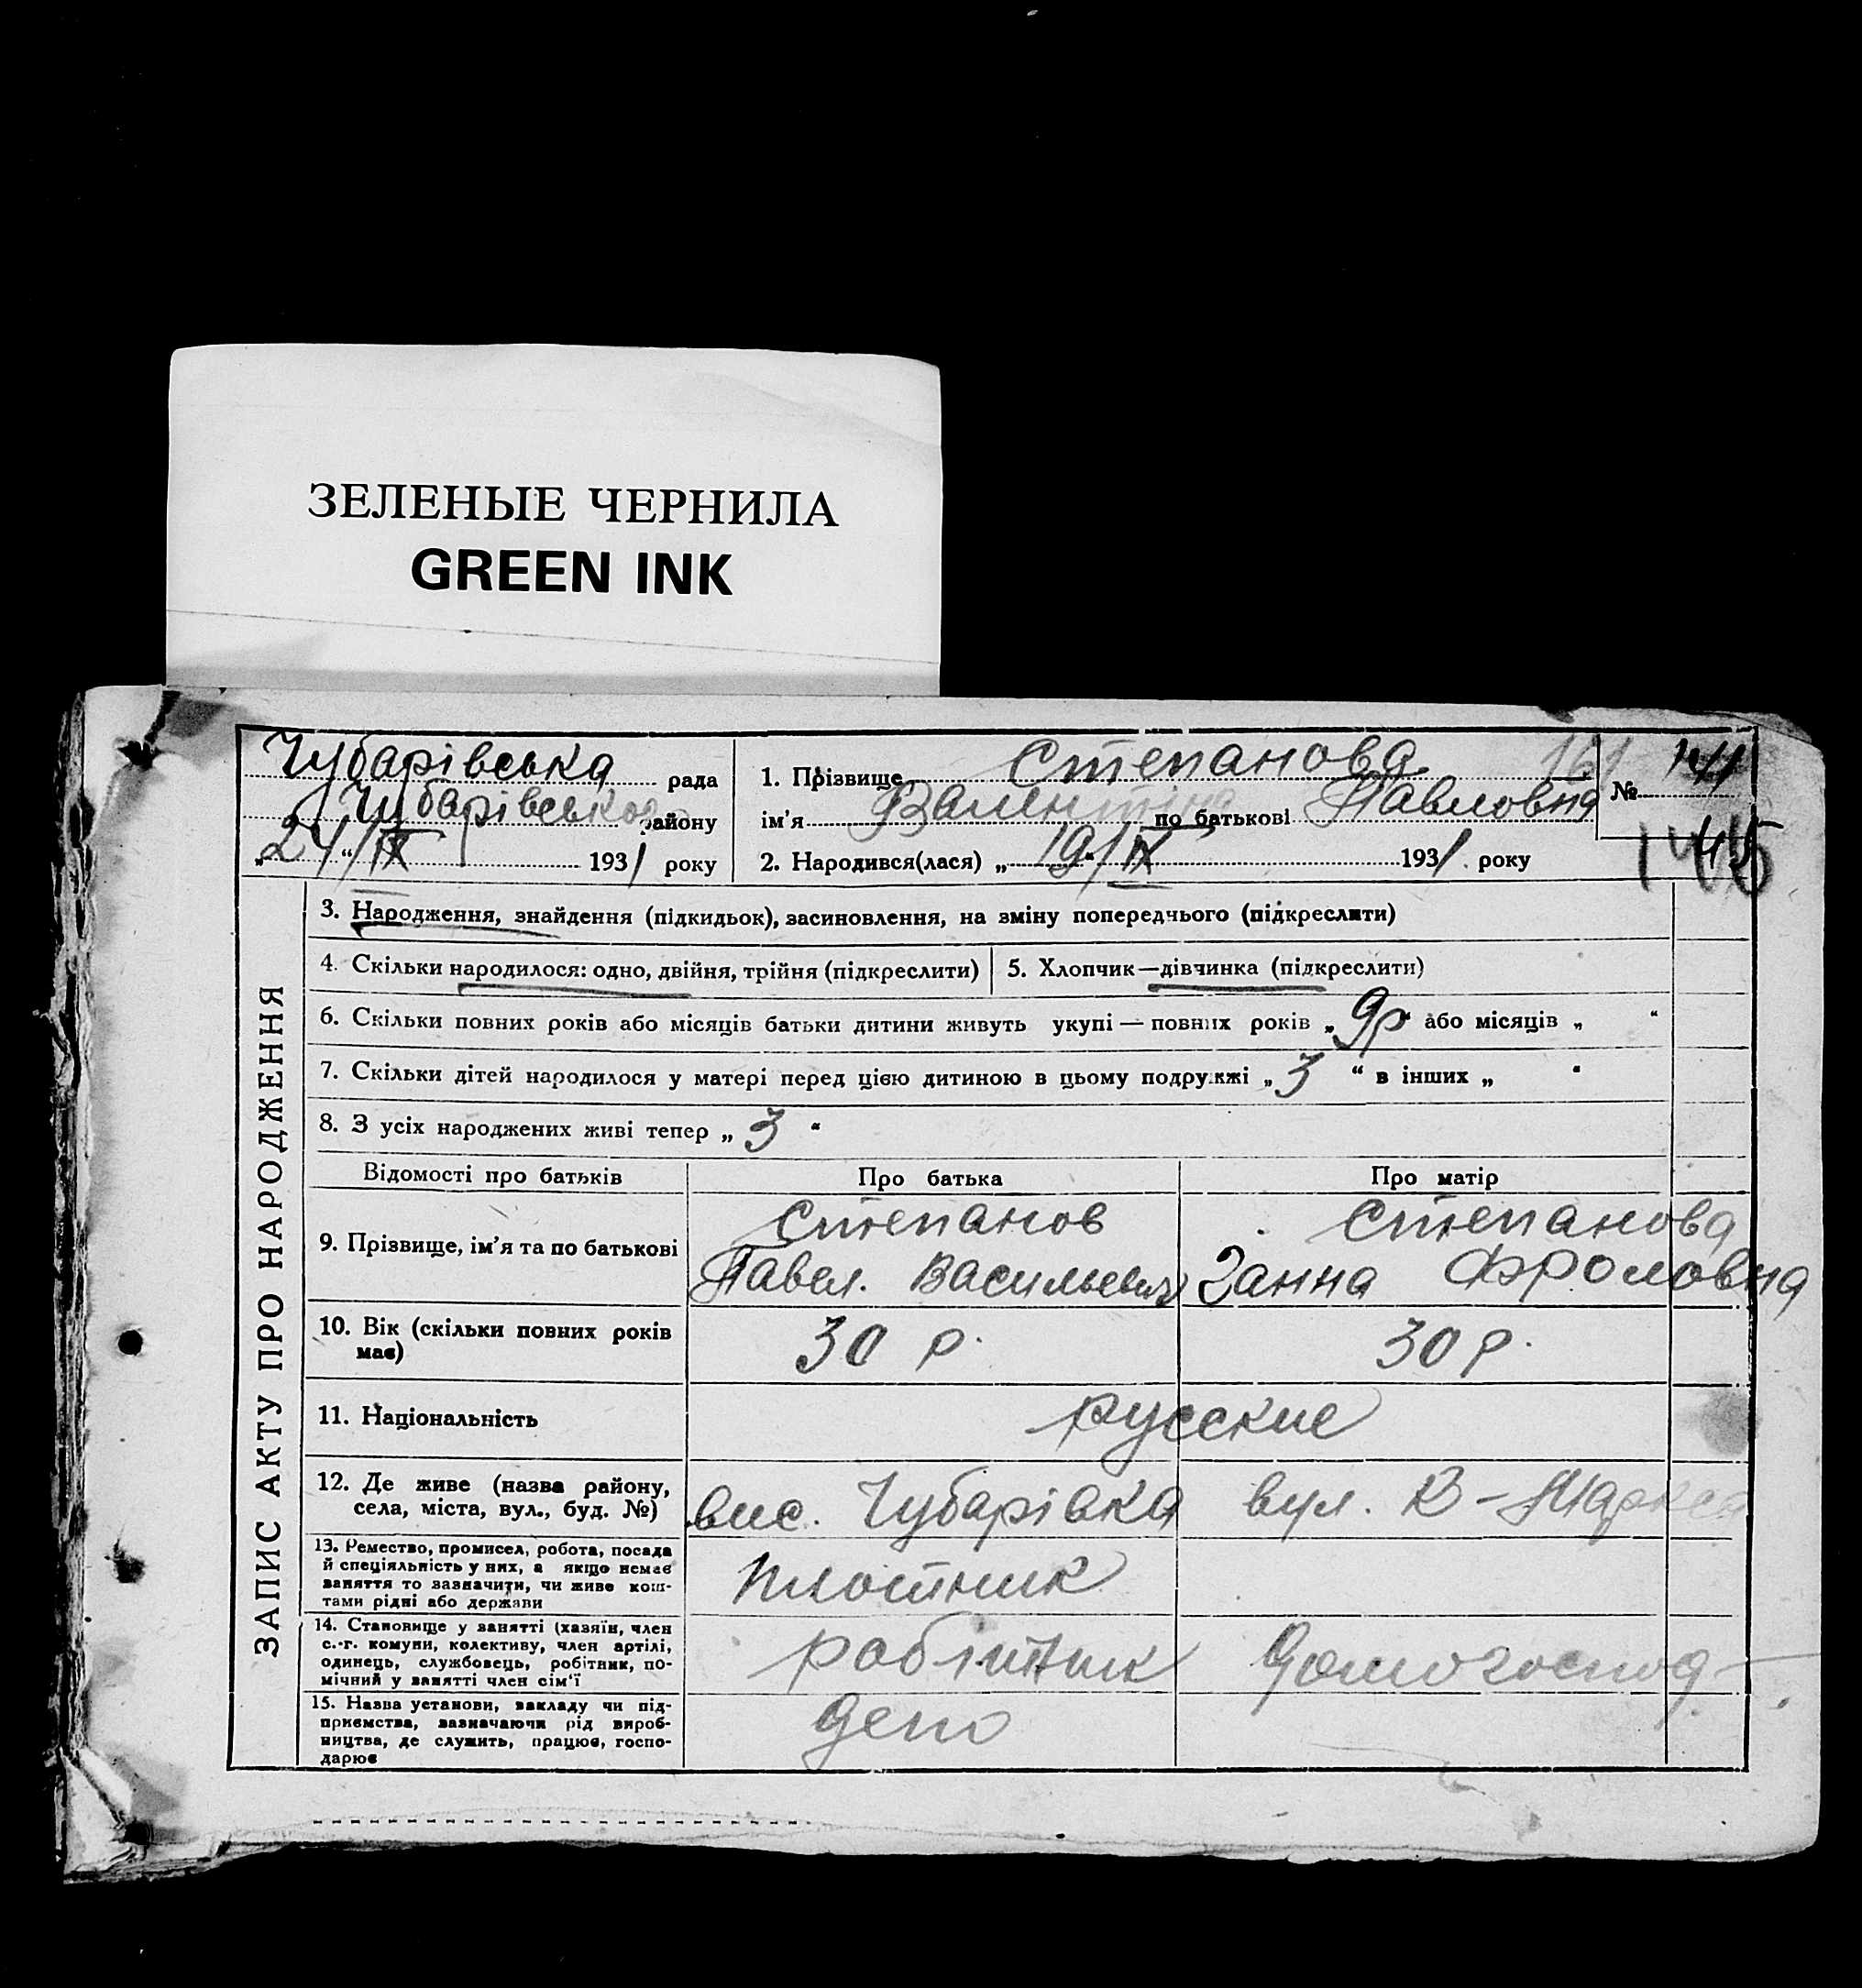 ЗЕЛЕНЫЕ ЧЕРНИЛА
GREEN INK
Чубарівська рада
Чубарівського району
„24/“ IX 1931 року
1. Прізвище Степанова 161
ім'я Валентіна по батькові Павловна
2. Народився(лася) „19/“ IX 1931. року
№
145
ЗАПИС АКТУ ПРО НАРОДЖЕННЯ
3. Народження, знайдення (підкидьок), засиновлення, на зміну попереднього (підкреслити)
4. Скільки народилося: одно, двійня, трійня (підкреслити)
5. Хлопчик—дівчинка (підкреслити)
6. Скільки повних років або місяців батьки дитини живуть укупі — повних років „9р“ або місяців „ “
7. Скільки дітей народилося у матері перед цією дитиною в цьому подружжі „3 “ в інших „ “
8. З усіх народжених живі тепер „3 “
Відомості про батьків
Про батька
Про матір
9. Прізвище, ім'я та по батькові
Степанов
Павел. Васильевич
Степанова
Ганна Фроловна
10. Вік (скільки повних років
має)
30 р.
30 р.
11. Національність
русские
12. Де живе (назва району,
села, міста, вул., буд. №)
вис. Чубарівка вул. К-Маркса
13. Ремество, промисел, робота, посада
й спеціяльність у них, а якщо немає
заняття то зазначити, чи живе кош-
тами рідні або держави
плотник
14. Становище у занятті (хазяїн, член
с.-г. комуни, колективу, член артілі,
одинець, службовець, робітник, по-
мічний у занятті член сім'ї
робітник
Домогоспод.
15. Назва установи, закладу чи під-
приємства, зазначаючи рід вироб-
ництва, де служить, працює, госпо-
дарює
депо